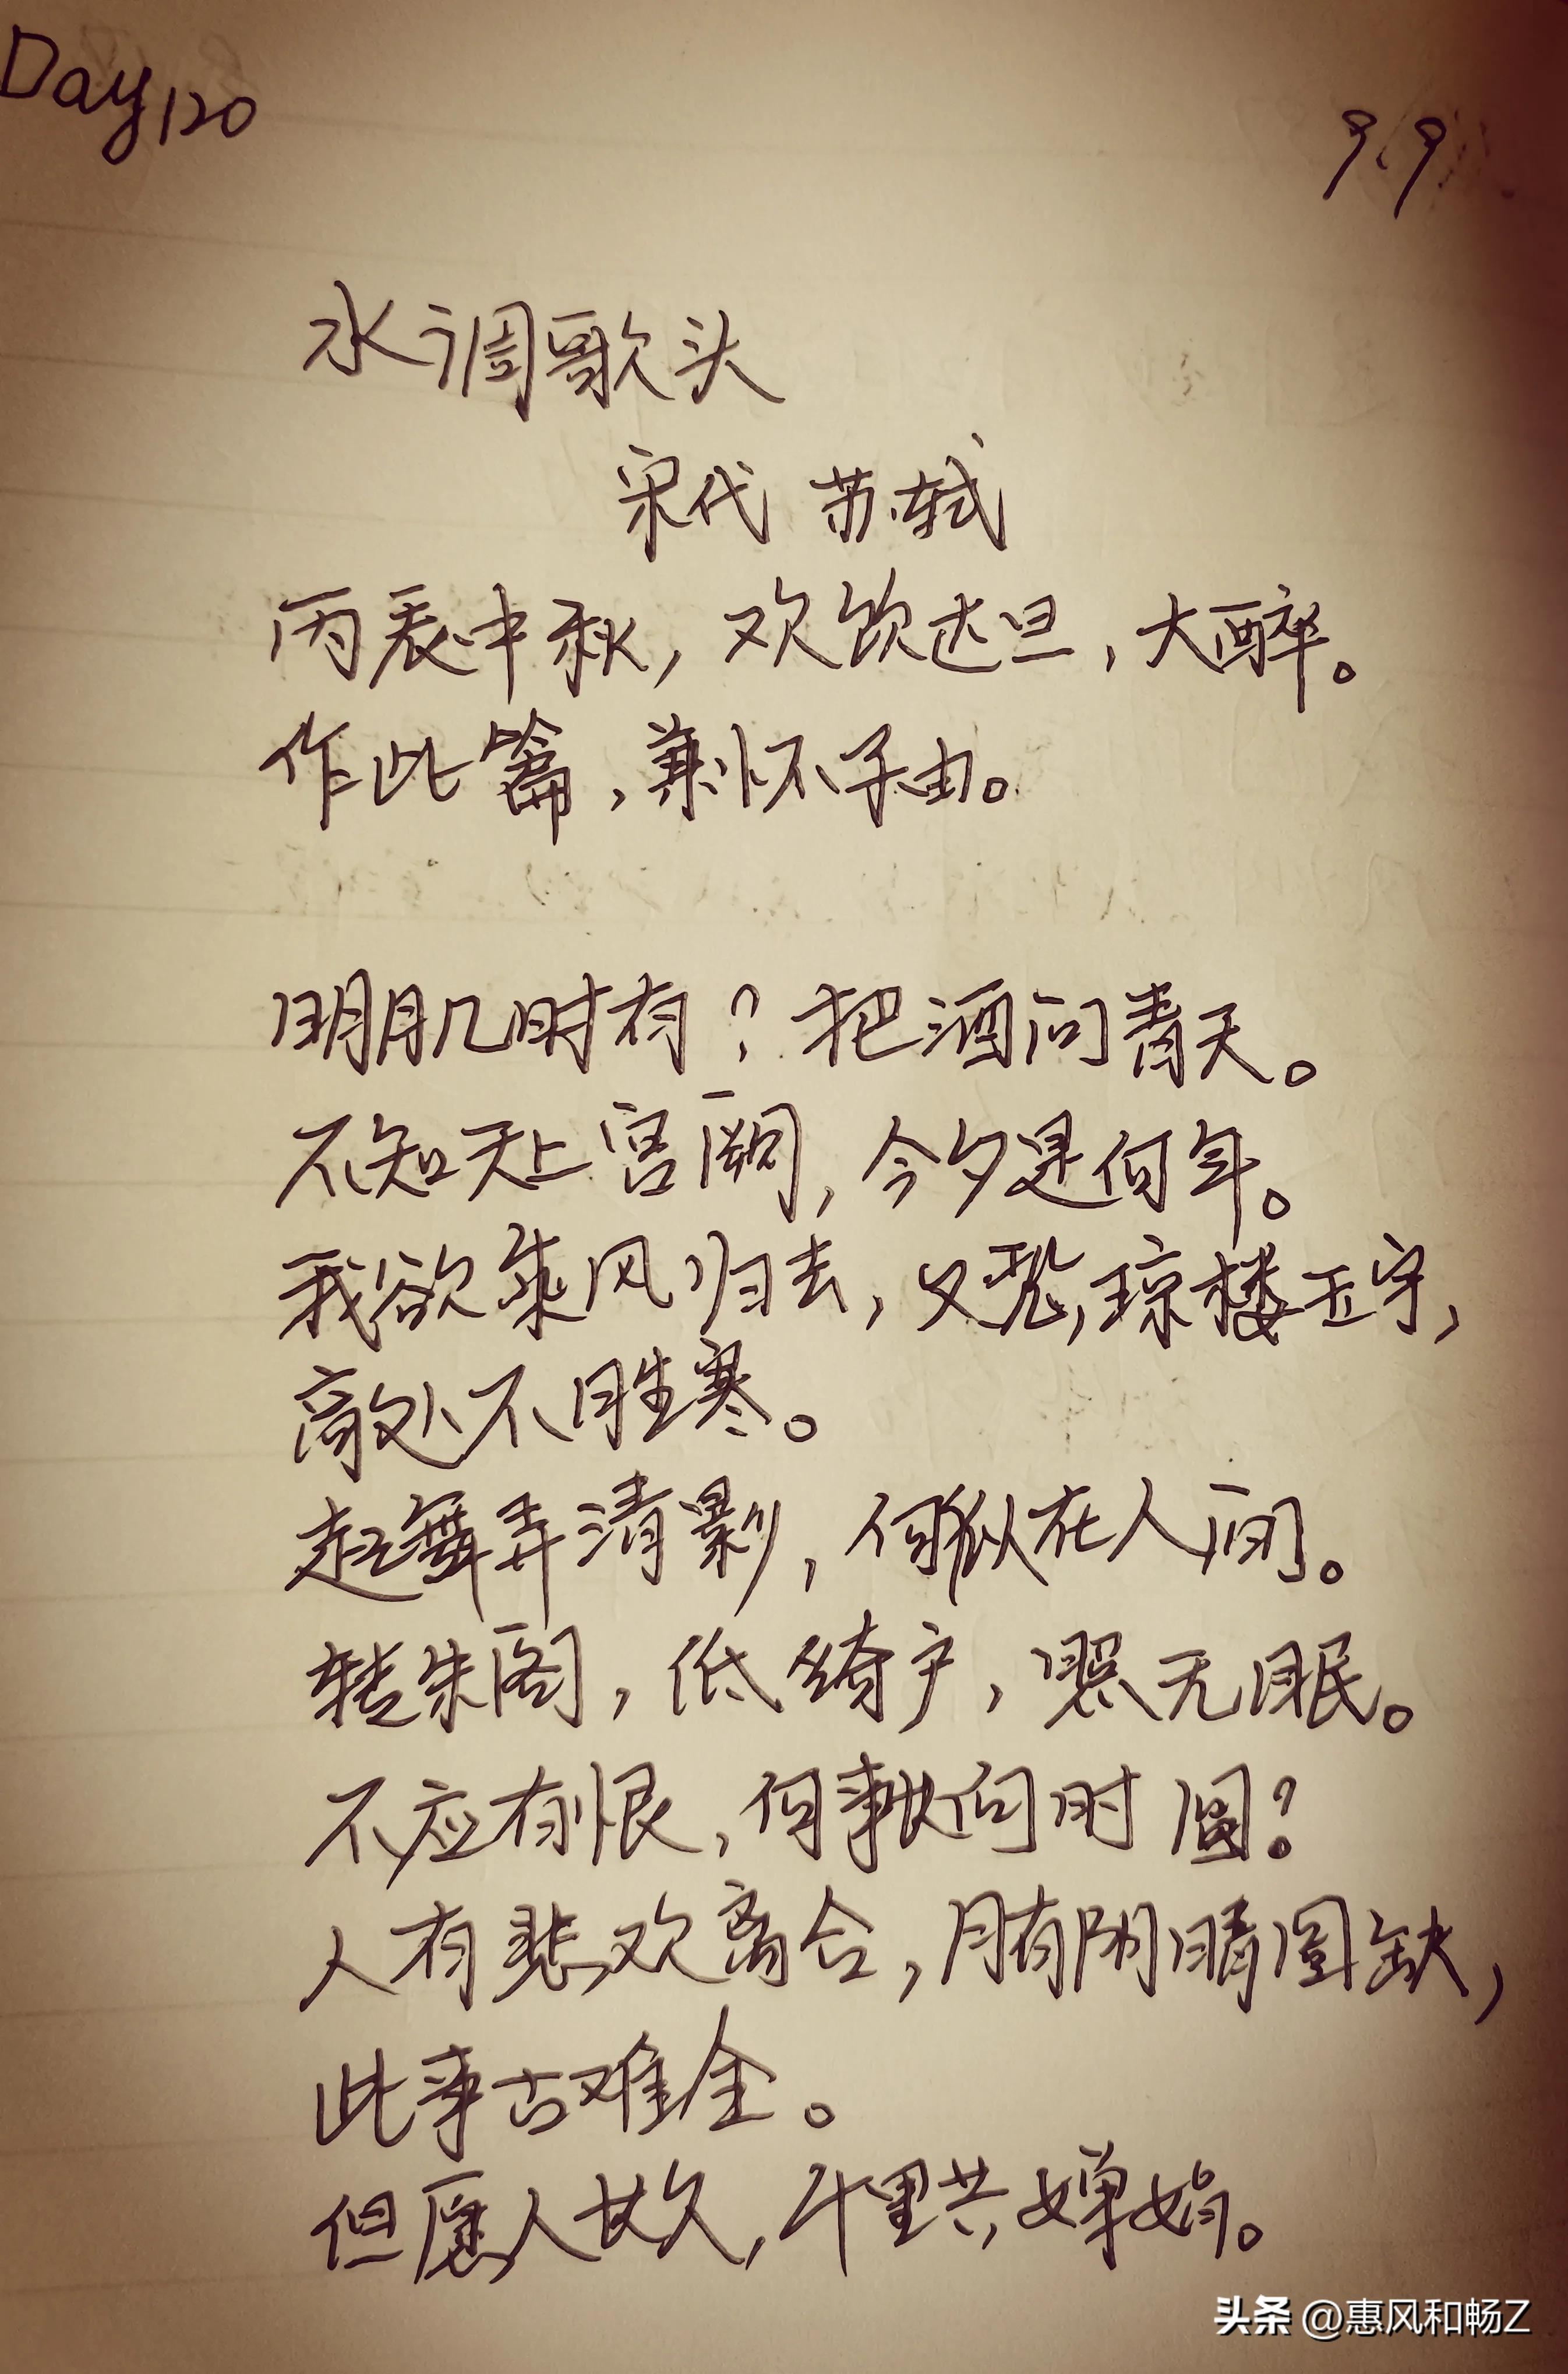 Day120
9.9
水调歌头
宋代 苏轼
丙辰中秋，欢饮达旦，大醉。
作此篇，兼怀子由。
明月几时有？把酒问青天。
不知天上宫阙，今夕是何年。
我欲乘风归去，又恐，琼楼玉宇，
高处不胜寒。
起舞弄清影，何似在人间。
转朱阁，低绮户，照无眠。
不应有恨，何事长向时圆？
人有悲欢离合，月有阴晴圆缺，
此事古难全。
但愿人长久，千里共婵娟。
头条 @惠风和畅Z